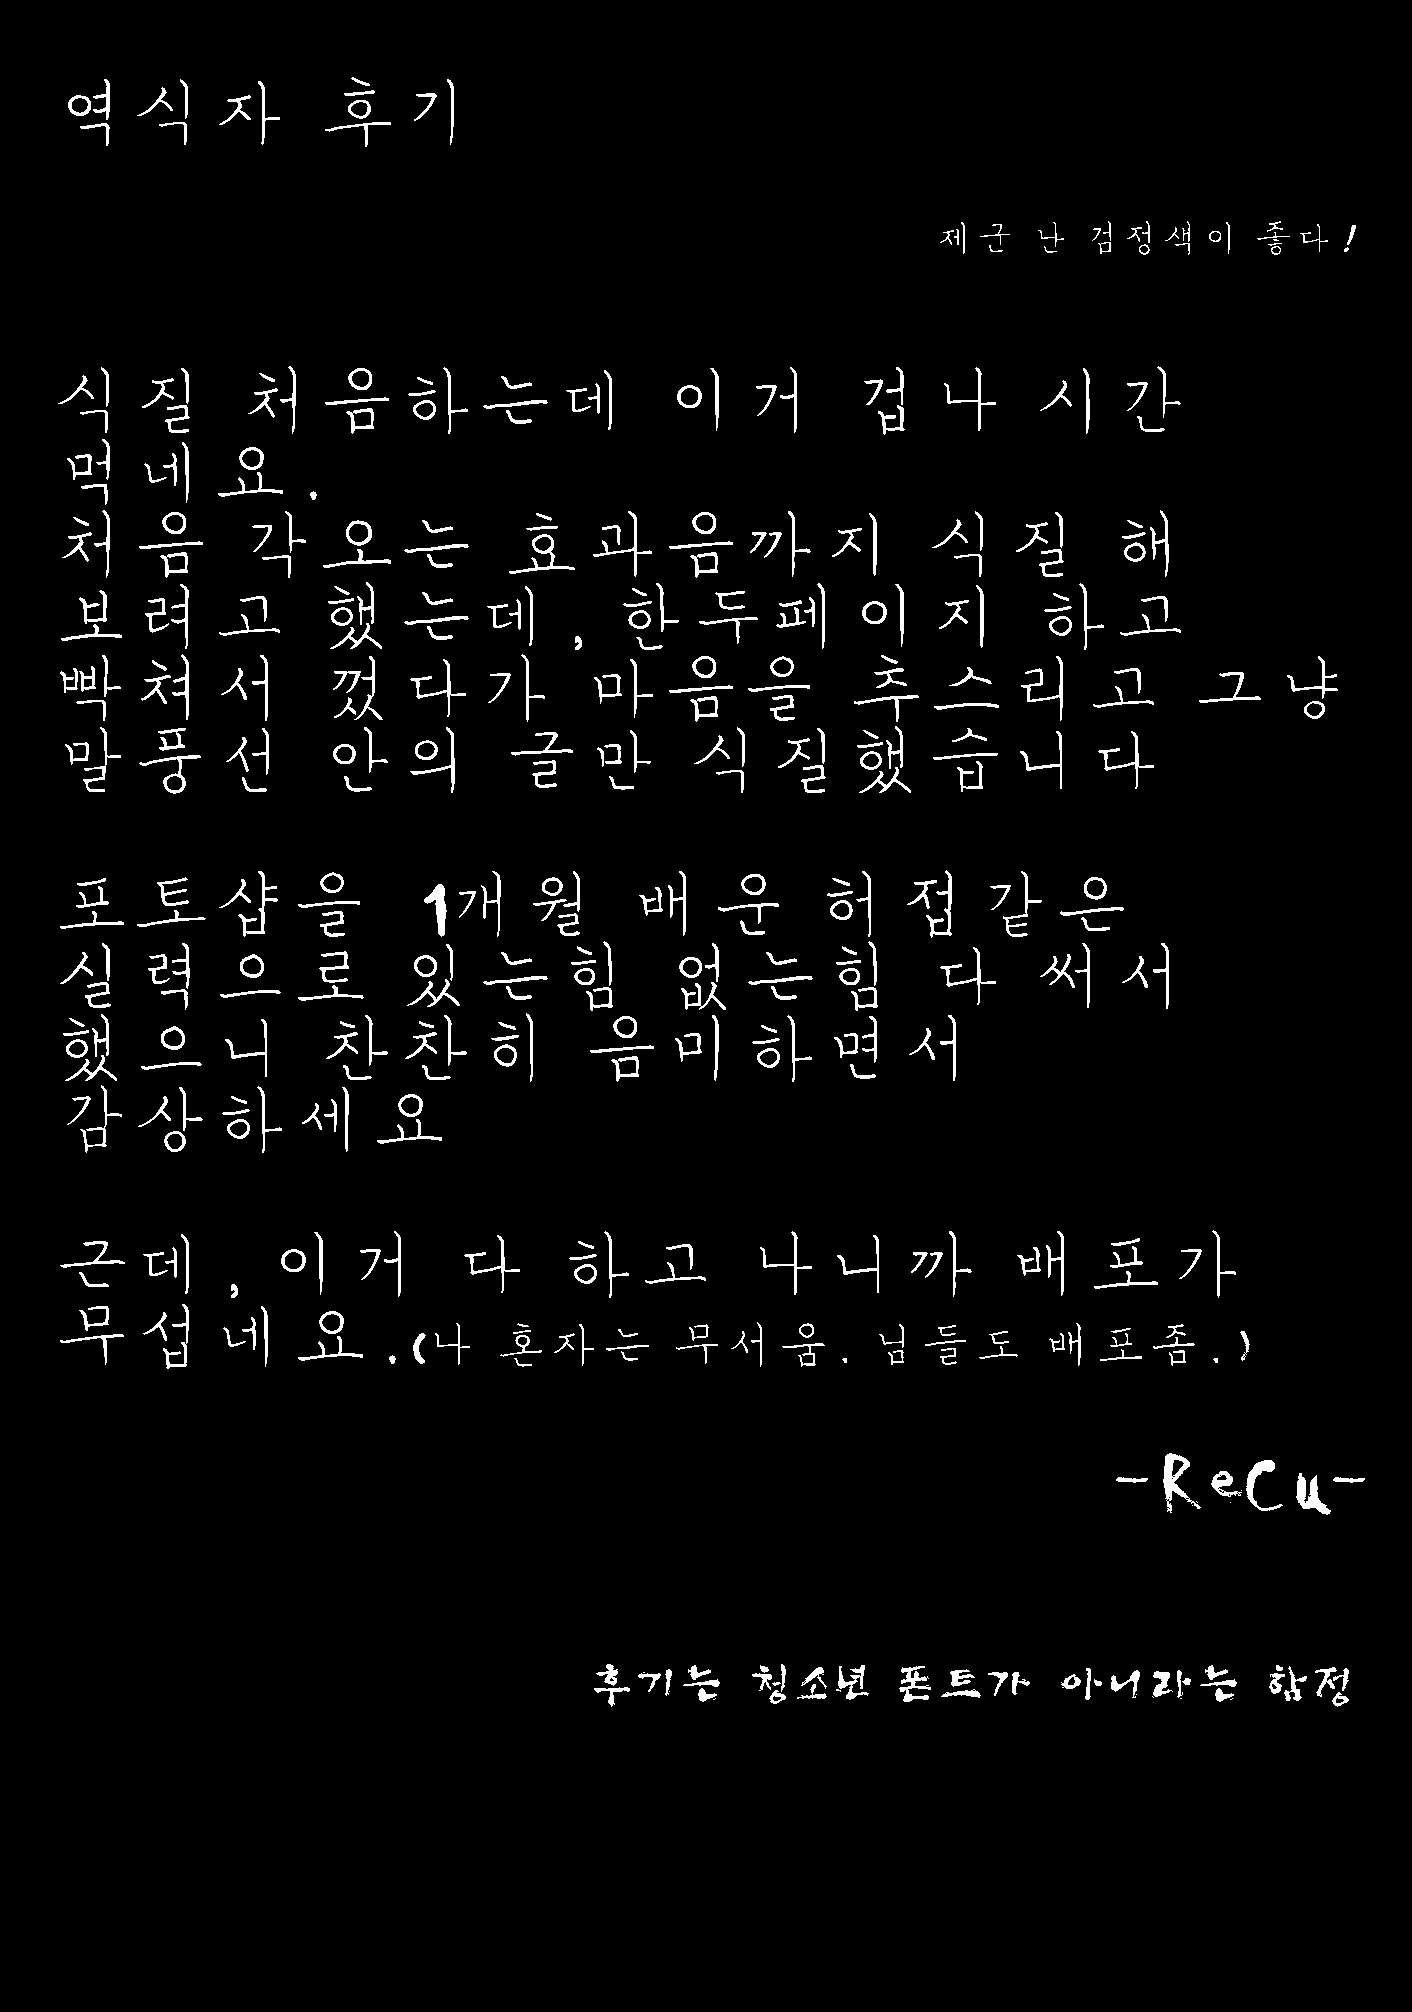 역식자 후기
제군 난 검정색이 좋다!
식질 처음하는데 이거 겁나 시간
먹네요.
처음 각오는 효과음까지 식질 해
보려고 했는데, 한두페이지 하고
빡쳐서 껐다가 마음을 추스리고 그냥
말풍선 안의 글만 식질했습니다
포토샵을 1개월 배운 허접같은
실력으로 있는힘 없는힘 다 써서
했으니 찬찬히 음미하면서
감상하세요
근데, 이거 다 하고 나니까 배포가
무섭네요.(나 혼자는 무서움. 님들도 배포좀.)
-ReCu-
후기는 청소년 폰트가 아니라는 함정